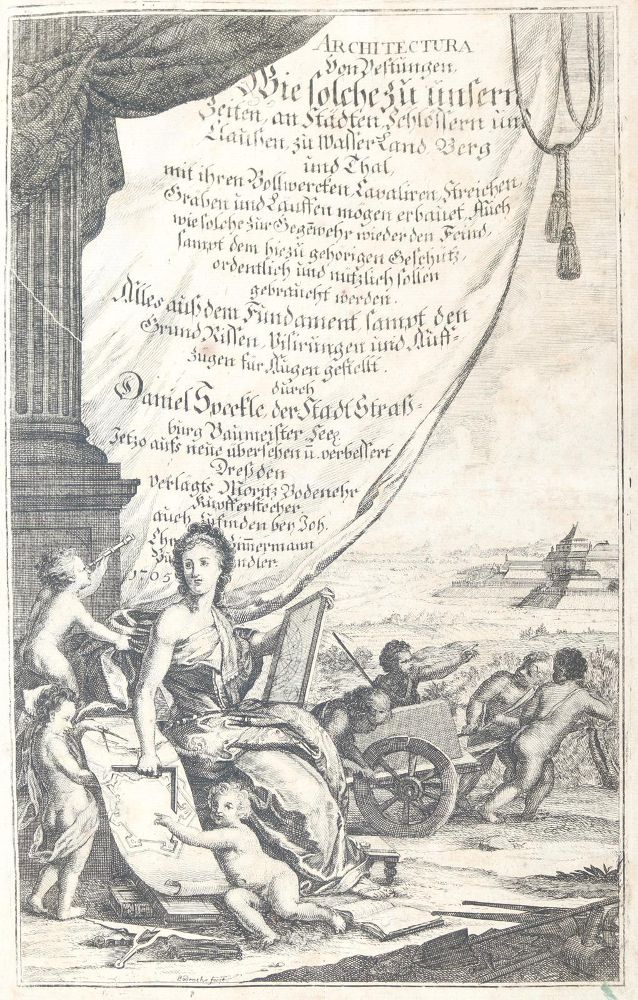 ARCHITECTURA
Von Vestungen,
Wie solche zu unsern
Zeiten, an Städten, Schlössern und
Claussen, zu Wasser Land, Berg
und Thal,
mit ihren Bollwercken, Cavaliren, Streichen,
Graben und Lauffen mögen erbauet, Auch
wie solche zur Gegenwehr wieder den Feind,
sampt dem hiezu gehörigen Geschütz,
ordentlich und nutzlich sollen
gebraucht werden.
Alles aus dem Fundament, sampt den
Grund Rissen, Visirungen und Auff-
zugen für Augen gestellt.
durch
Daniel Speckle, der Stadt Straß-
burg Baumeister Seel.
Jetzo aufs neue übersehen u. verbessert
Dreßden
verlagts Moritz Bodenehr
Kupfferstecher,
auch zu finden bey Joh.
Chr immermann
ndler.
1705
Bodenehr fecit.